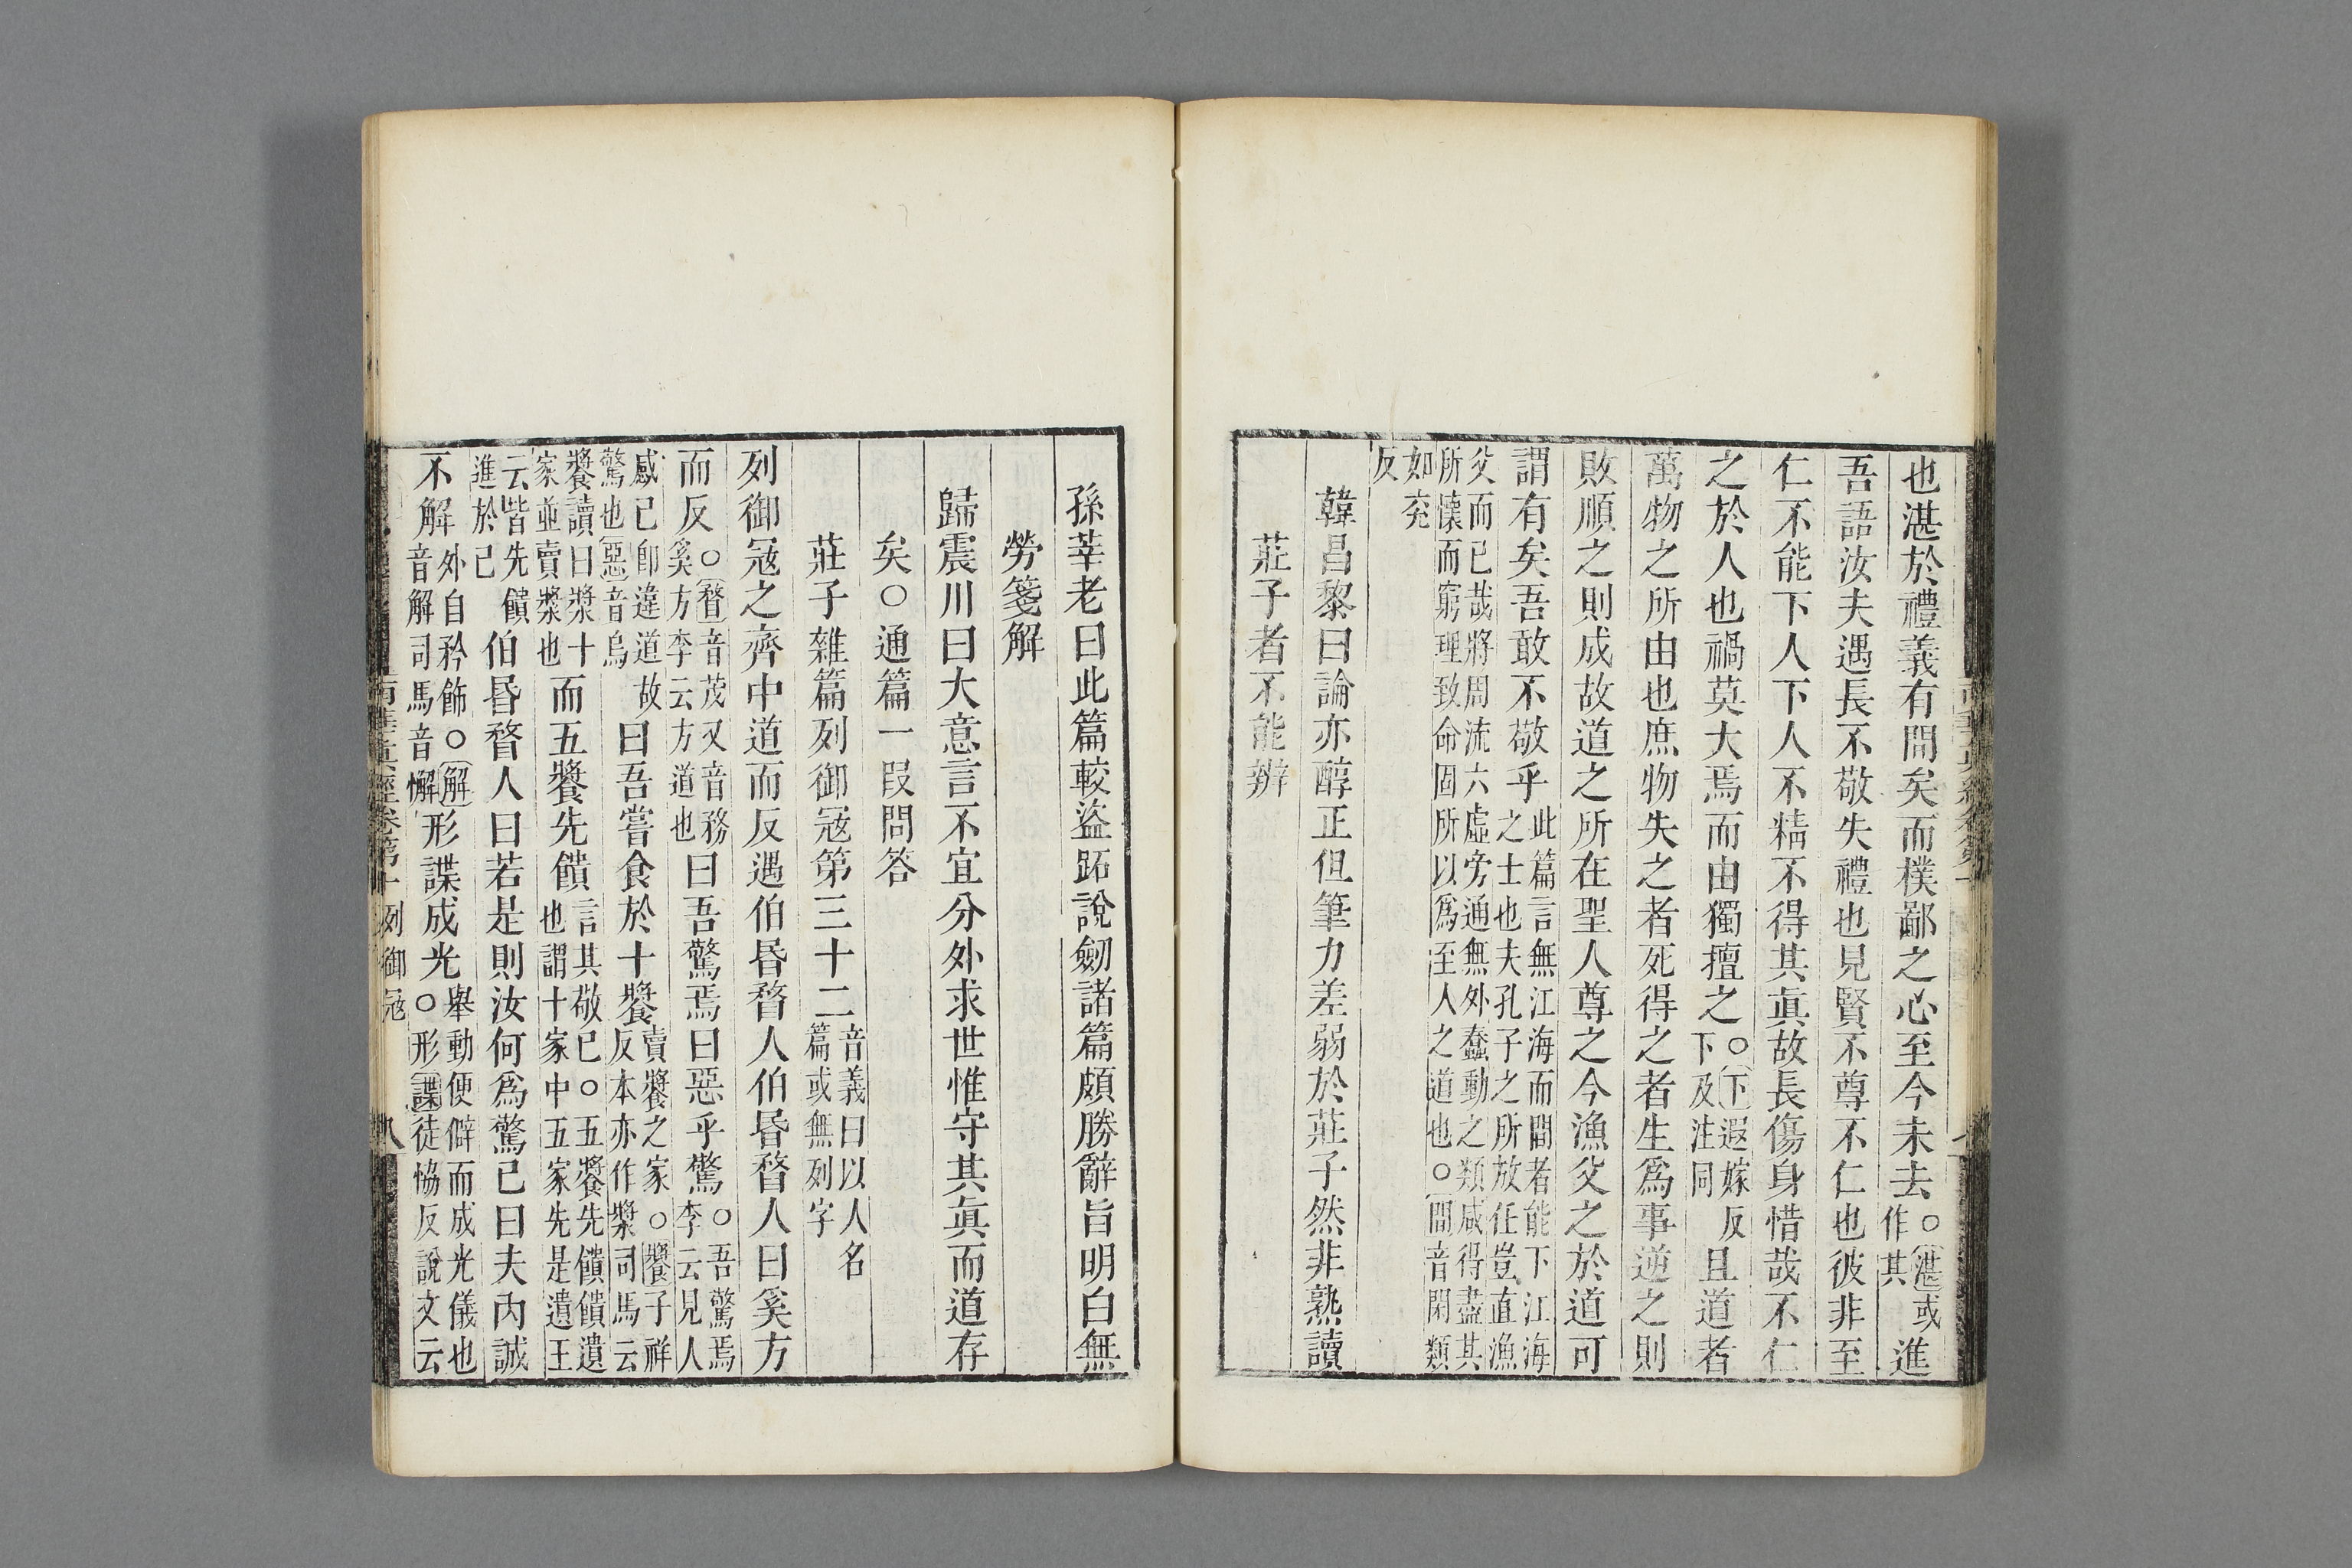 也湛於禮義有間矣而樸鄙之心至今未去○湛或作其進
吾語汝夫遇長不敬失禮也見賢不尊不仁也彼非至
仁不能下人下人不精不得其眞故長傷身惜哉不仁
之於人也禍莫大焉而由獨擅之○下遐嫁反下及注同且道者
萬物之所由也庶物失之者死得之者生爲事逆之則
敗順之則成故道之所在聖人尊之今漁父之於道可
謂有矣吾敢不敬乎此篇言無江海而間者能下江海之士也夫孔子之所放任豈直漁
父而已哉將周流六虛旁通無外蠢動之類咸得盡其所懷而窮理致命固所以爲至人之道也○間音閑類
如兖反
韓昌黎曰論亦醇正但筆力差弱於莊子然非熟讀
莊子者不能辨
孫莘老曰此篇較盜跖說劒諸篇頗勝辭旨明白無
勞箋解
歸震川曰大意言不宜分外求世惟守其眞而道存
矣○通篇一段問答
莊子雜篇列御冦第三十二音義曰以人名篇或無列字
列御冦之齊中道而反遇伯昏瞀人伯昏瞀人曰奚方
而反○瞀音茂又音務奚方李云方道也曰吾驚焉曰惡乎驚○吾驚焉李云見人
感已卽違道故驚也惡音烏曰吾嘗食於十𩞁賣𩞁之家○𩞁子祥反本亦作漿司馬云
𩞁讀曰漿十家並賣漿也而五𩞁先饋言其敬已○五𩞁先饋饋遺也謂十家中五家先是遺王
云皆先饋進於己伯昏瞀人曰若是則汝何爲驚已曰夫內誠
不解外自矜飾○解音解司馬音懈形諜成光舉動便僻而成光儀也○形諜徒恊反說文云
南華眞經卷第十 列御冦 八